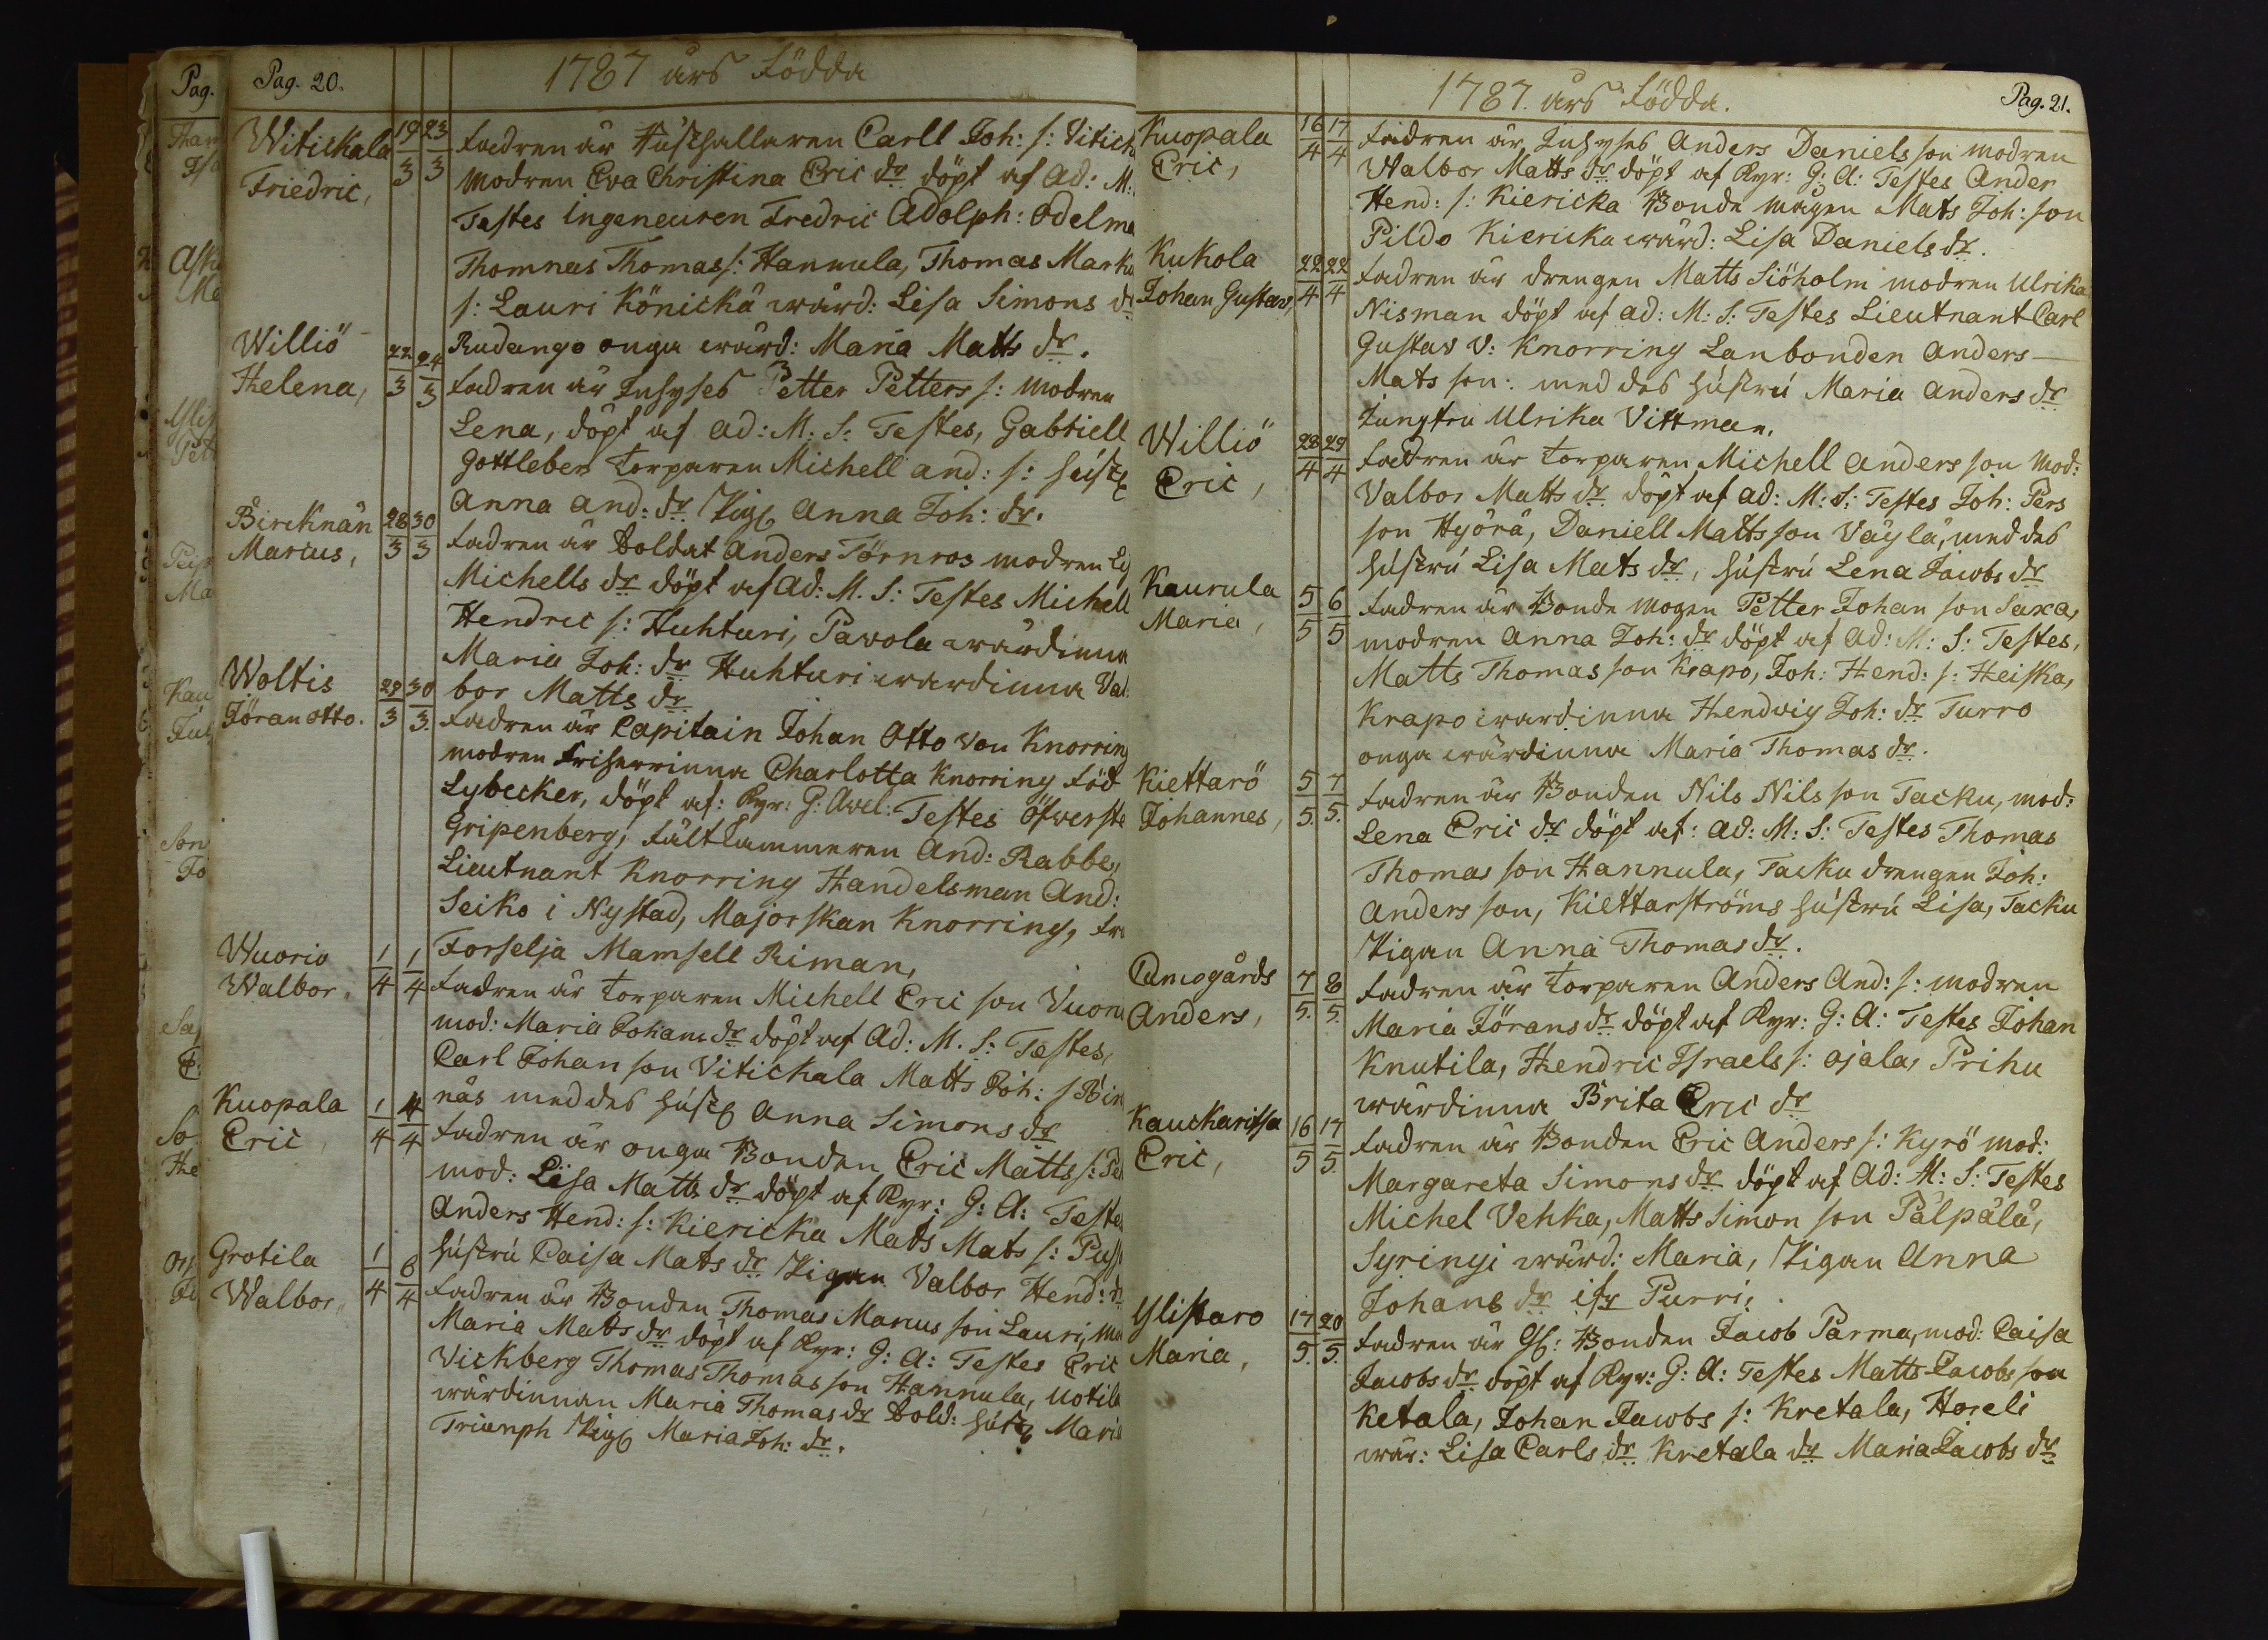 Pag. 20.
1787 års Födda
Witickala 19/3 23/3 Fadren är Rusthallaren Carll Joh: s: Vitick
Friedric, modren Eva Christina Eric dr döpt af Ad: M:
Testes ingeneuren Fredric Adolph: Odelma
Thomas Thomas s: Hannula, Thomas Marku
s: Lauri Könickä wärd: Lisa Simons dr
Rudango onga wärd: Maria Matts dr.
Williö 22/3 24/3
Helena, Fadren är Inhyses Petter Petters s: modren
Lena, döpt af ad: M: S: Testes, Gabriell
Gottleben torparen Michell and: s: hust
Anna And: dr Pig Anna Joh: dr.
Bircknän 28/3 30/3 Fadren är Soldat Anders Törnros modren
Marcus, Michells dr döpt af Ad: M. S: Testes Michell
Hendric s: Huhturi, Pavola wärdinna
Maria Joh: dr Huhturi wärdinna Val
bor Matts dr
Woltis 29/3 30/3
Jöran Otto. Fadren är Capitain Johan Otto von Knorring
modren Friherrinna Charlotta Knorring föd
Lybecker, döpt af: Kyr: G: Avel: Testes Öfverste
Gripenberg, Fältkammeren And: Rabbe,
Lieutnant Knorring Handelsman And:
Seiko i Nystad, Majorskan Knorring, Fr
Forselja Mamsell Riman,
Wuorio 1/4 1/4
Walbor, Fadren är torparen Michell Eric son Vuori
mod: Maria Johans dr döpt af Ad: M. S: Testes,
Carl Johan son Vitickala Matts Joh: s Birk
näs med des hust Anna Simons dr
Kuopala 1/4 4/4
Eric, Fadren är onga Bonden Eric Matts s:
mod: Lisa Matts dr döpt af Kyr: G: A: Testes
Anders Hend: s: Kiericka Mats Mats s:
hustru Caisa Mats dr Pigan Valbor Hend: dr
Grotila 1/4 6/4
Walbor, Fadren är Bonden Thomas Marcus son Lauri, mo
Maria Matts dr döpt af Kyr: G: A: Testes Eric
Vickberg Thomas Thomas son Hannula, Uotila
wärdinnan Maria Thomas dr Sold: hust Maria
Triumph Pig Maria Joh: dr.
1787. års Födda. Pag. 21.
Kuopala 16/4 17/4 Fadren är Inhyses Anders Daniels son modren
Eric, Walbor Matts dr döpt af Kyr: G: A: Testes Ander
Hend: s: Kiericka Bonde magen Mats Joh: son
Pildo Kiericka wärd: Lisa Daniels dr.
Kukola 22/4 22/4 Fadren är drengen Matts Siöholm modren Ulrika
Johan Gustav, Nisman döpt af ad: M: S: Testes Lieutnant Carl
Gustav V: Knorring Lanbonden Anders
Mats son: med des hustru Maria Anders dr
Jungfru Ulrika Vittman.
Williö 28/4 29/4 Fadren är torparen Michell Anders son mod:
Eric, Valbor Matts dr döpt af ad: M: S: Testes Joh: Pers
son Hyörä, Daniell Matts son Väylä, med des
hustru Lisa Mats dr, hustru Lena Jacobs dr
Kaurula 5/5 6/5 Fadren är Bonde mogen Petter Johan son Saxa,
Maria, modren Anna Joh: dr döpt af ad: M: S: Testes,
Matts Thomas son Krapo, Joh: Hend: s: Heiska,
Krapo wärdinna Hendvig Joh: dr Turro
onga wärdinna Maria Thomas dr.
Kiettarö 5/5. 7/5. Fadren är Bonden Nils Nils son Tacku, mod:
Johannes, Lena Eric dr döpt af: ad: M: S: Testes Thomas
Thomas son Hannula, Tacku drengen Joh:
Anders son, Kiettarströms hustru Lisa, Tacku
Pigan Anna Thomas dr.
Camogårds 7/5. 8/5. Fadren är torparen Anders And: s: modren
Anders, Maria Jörans dr döpt af Kyr: G: A: Testes Johan
Knutila, Hendric Israels s: Ojala, Prihu
wärdinna Brita Eric dr
Kauckaritsa 16/5 17/5. Fadren är Bonden Eric Anders s: Kyrö mod:
Eric, Margareta Simons dr döpt af Ad: M: S: Testes
Michel Vehka, Matts Simon son Pälpälä,
Syrinyi wärd: Maria, Pigan Anna
Johans dr ifr Purri,
Ylistaro 17/5. 20/5. Fadren är Gl: Bonden Jacob Parma, mod: Caisa
Maria, Jacobs dr döpt af Kyr: G: A: Testes Matts Jacobs son
Ketala, Johan Jacobs s: Kretala, Horeli
wär: Lisa Carls dr Kretala dr Maria Jacobs dr